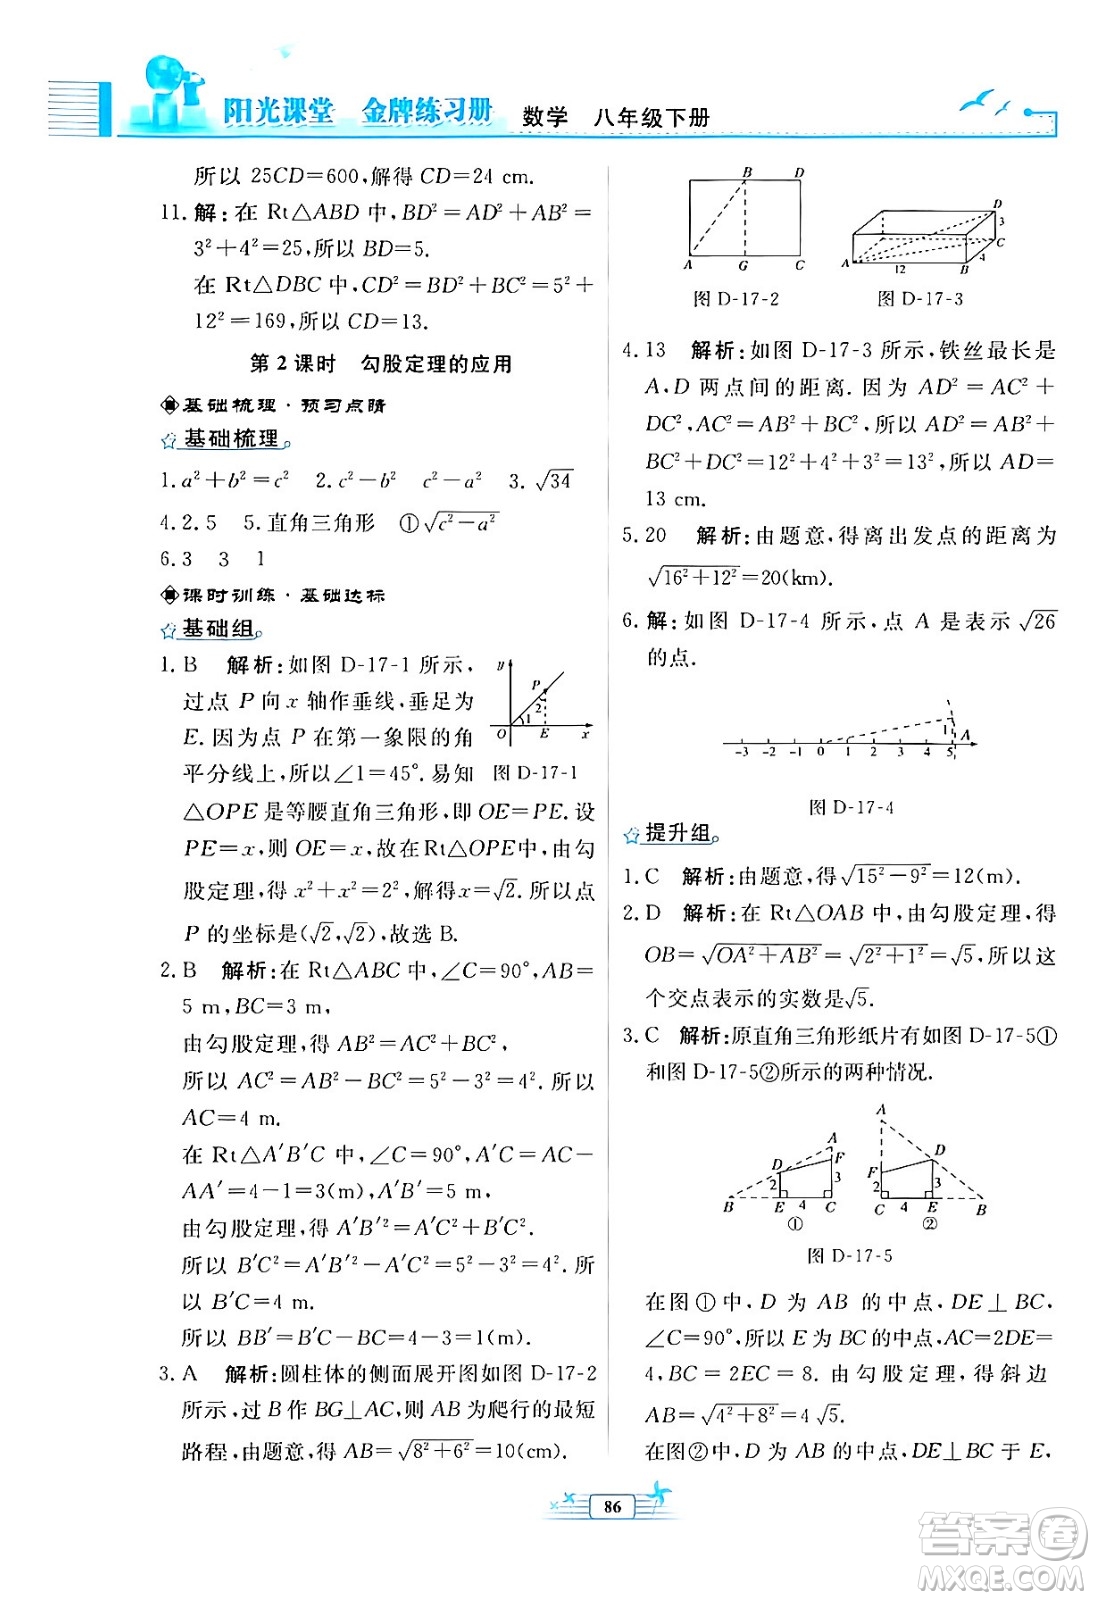 阳光课堂 金牌练习册 数学 八年级下册
所以 25CD=600,解得 CD=24 cm.
11. 解:在 Rt△ABD 中,BD²=AD²+AB²=
3²+4²=25,所以 BD=5.
在 Rt△DBC 中,CD²=BD²+BC²=5²+
12²=169,所以 CD=13.
第 2 课时 勾股定理的应用
基础梳理·预习点睛
基础梳理
1. a²+b²=c² 2. c²-b² c²-a² 3. √34
4. 2.5 5. 直角三角形 ①√(c²-a²)
6. 3 3 1
课时训练·基础达标
基础组
1. B 解析:如图 D-17-1 所示,
过点 P 向 x 轴作垂线,垂足为
E. 因为点 P 在第一象限的角
平分线上,所以∠1=45°. 易知
y P 2 1 O E x
图 D-17-1
△OPE 是等腰直角三角形,即 OE=PE. 设
PE=x,则 OE=x,故在 Rt△OPE中,由勾
股定理,得 x²+x²=2²,解得x=√2. 所以点
P 的坐标是(√2,√2),故选 B.
2. B 解析:在 Rt△ABC 中,∠C=90°,AB=
5 m,BC=3 m,
由勾股定理,得 AB²=AC²+BC²,
所以 AC²=AB²-BC²=5²-3²=4². 所以
AC=4 m.
在 Rt△A′B′C 中,∠C=90°,A′C=AC-
AA′=4-1=3(m),A′B′=5 m,
由勾股定理,得 A′B′²=A′C²+B′C²,
所以 B′C²=A′B′²-A′C²=5²-3²=4². 所
以 B′C=4 m.
所以 BB′=B′C-BC=4-3=1(m).
3. A 解析:圆柱体的侧面展开图如图 D-17-2
所示,过 B 作 BG⊥AC,则 AB为爬行的最短
路程,由题意,得 AB=√(8²+6²)=10(cm).
B D
A G C
图 D-17-2
D 3 C 4 A 12 B
图 D-17-3
4. 13 解析:如图 D-17-3 所示,铁丝最长是
A,D 两点间的距离. 因为 AD²=AC²+
DC²,AC²=AB²+BC²,所以 AD²=AB²+
BC²+DC²=12²+4²+3²=13²,所以 AD=
13 cm.
5. 20 解析:由题意,得离出发点的距离为
√(16²+12²)=20(km).
6. 解:如图 D-17-4 所示,点 A 是表示 √26
的点.
-3 -2 -1 0 1 2 3 4 5 1 A
图 D-17-4
提升组
1. C 解析:由题意,得√(15²-9²)=12(m).
2. D 解析:在 Rt△OAB 中,由勾股定理,得
OB=√(OA²+AB²)=√(2²+1²)=√5,所以这
个交点表示的实数是√5.
3. C 解析:原直角三角形纸片有如图 D-17-5①
和图 D-17-5②所示的两种情况.
A D F 2 3 B E 4 C
①
A F D 2 3 C 4 E B
②
图 D-17-5
在图①中,D 为 AB 的中点,DE⊥BC,
∠C=90°,所以 E 为 BC的中点,AC=2DE=
4,BC=2EC=8. 由勾股定理,得斜边
AB=√(4²+8²)=4√5.
在图②中,D 为 AB 的中点,DE⊥BC 于 E,
86
答案圈